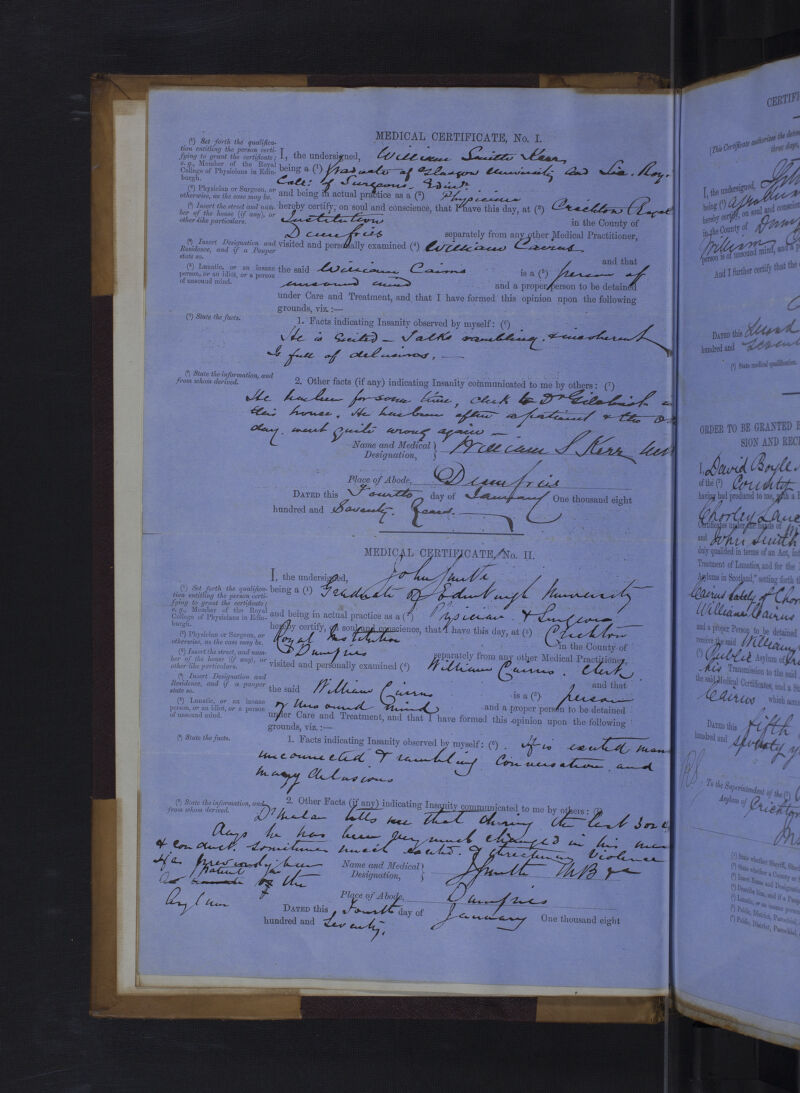 MEDICAL CERTIFICATE, No. I.
(¹) Set forth the qualifica-
tion entitling the person certi-
fying to grant the certificate;
e.g., Member of the Royal
College of Physicians in Edin-
burgh.
(²) Physician or Surgeon, or
otherwise, as the case may be.
(³) Insert the street and num-
ber of the house (if any), or
other like particulars.
(⁴) Insert Designation and
Residence, and if a Pauper
state so.
(⁵) Lunatic, or an insane
person, or an idiot, or a person
of unsound mind.
(⁶) State the facts.
(⁷) State the information, and
from whom derived.
I, the undersigned, William Smith Kerr
being a (¹) Graduate of Glasgow University and Lic. Roy.
Coll: of Surgeons. Edinr.
and being in actual practice as a (²) Physician
hereby certify, on soul and conscience, that I have this day, at (³) Crichton Royal
Institution in the County of
Dumfries separately from any other Medical Practitioner,
visited and personally examined (⁴) William Cairns
and that
the said William Cairns is a (⁵) person of
unsound mind and a proper person to be detained
under Care and Treatment, and that I have formed this opinion upon the following
grounds, viz. :—
1. Facts indicating Insanity observed by myself: (⁶)
He is excited – Talks rambling & incoherent
Is full of delusions. –
2. Other facts (if any) indicating Insanity communicated to me by others: (⁷)
He has been for some time, clerk to Dr Gilchrist
this house. He has been often a patient & the
day went quite wrong again –
Name and Medical
Designation, William S Kerr
Place of Abode, Dumfries
DATED this Fourth day of January One thousand eight
hundred and Seventy. Years.
MEDICAL CERTIFICATE, No. II.
(¹) Set forth the qualifica-
tion entitling the person certi-
fying to grant the certificate;
e.g., Member of the Royal
College of Physicians in Edin-
burgh.
(²) Physician or Surgeon, or
otherwise, as the case may be.
(³) Insert the street, and num-
ber of the house (if any), or
other like particulars.
(⁴) Insert Designation and
Residence, and if a pauper
state so.
(⁵) Lunatic, or an insane
person, or an idiot, or a person
of unsound mind.
(⁶) State the facts.
(⁷) State the information, and
from whom derived.
I, the undersigned, John Smith
being a (¹) Graduate of Edinburgh University
and being in actual practice as a (²) Physician & Surgeon
hereby certify, on soul and conscience, that I have this day, at (³) Crichton
Royal Institution in the County of
Dumfries separately from any other Medical Practitioner,
visited and personally examined (⁴) William Cairns. Clerk.
and that
the said William Cairns is a (⁵) person
of unsound mind and a proper person to be detained
under Care and Treatment, and that I have formed this opinion upon the following
grounds, viz. :—
1. Facts indicating Insanity observed by myself: (⁶) . His excited
unconnected & rambling conversation and
many delusions
2. Other Facts (if any) indicating Insanity communicated to me by others: (⁷)
tells me that during the last 3 or 4
days he has been very much changed in his
& conduct. sometimes much excited. & threatening violence
Has previously been
patient
the
Asylum
Name and Medical
Designation, J Smith M B
Place of Abode, Dumfries
DATED this Fourth day of January One thousand eight
hundred and Seventy.
CERTIFI
(This Certificate authorises the
three days,
I, the undersigned,
being (¹)
hereby certify, on soul and conscien
in the County of Dum
William
person is of unsound mind, and a
And I further certify that the
DATED this
hundred and Sevent
(¹) State medical qualification.
ORDER TO BE GRANTED B
SION AND REC
I, David Boyle
of the (¹) County
having had produced to me, with a
Chorley
Certificates under the hands of
and John Smith
duly qualified in terms of an Act,
Treatment of Lunatics, and for the
Asylums in Scotland," setting forth
Cairns lately of Chor
William Cairns
and a proper Person to be detained
receive the said William
(⁵) Public Asylum of
his Transmission to the said
the said Medical Certificates, and a
Cairns which
DATED this fifth
hundred and seventy
To the Superintendent of the (⁶)
Asylum of Crichton